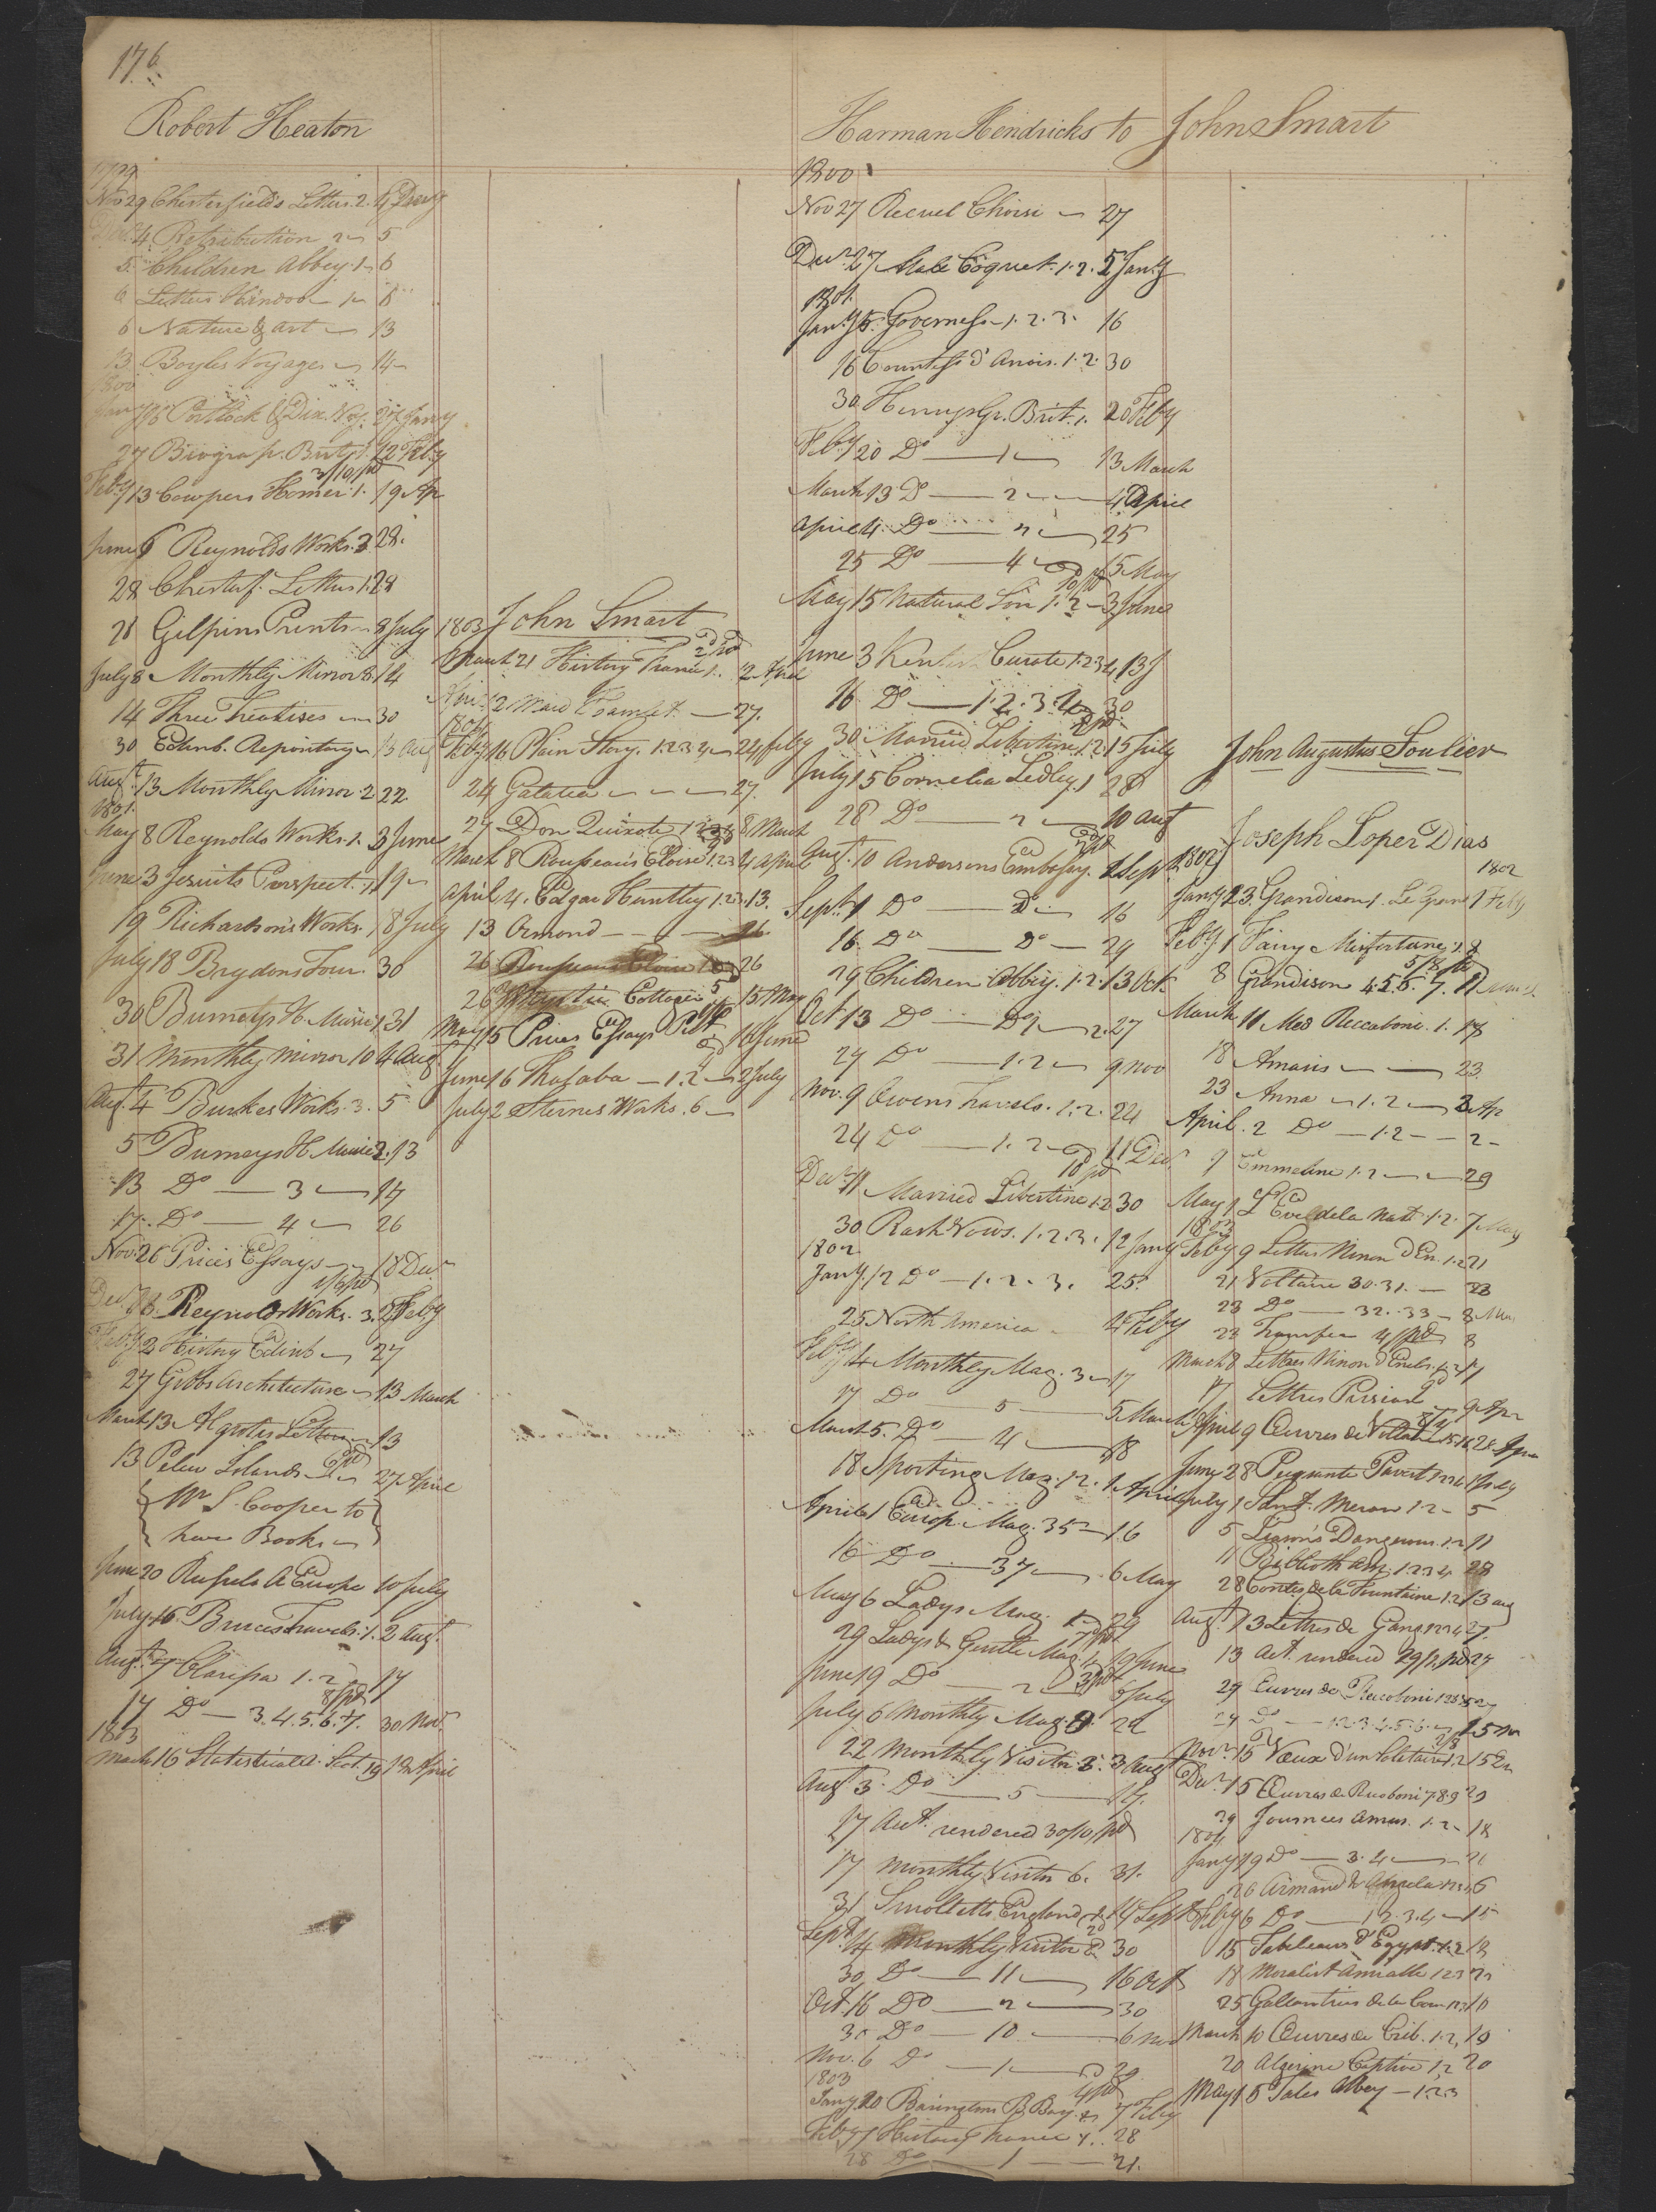 176
Robert Heaton
1799
Nov 29 Chesterfields Letters 2. 4 Decr
Decr 4 Retribution 2 5
5 Children Abbey 1 6
6 Letters Hindoo 1 6
6 Nature & Art 13
13 Boyles Voyages 14
1800
Jany 16 Portlock & Dix. Voy. 27 Jany
27 Biograp. Brit. 1. 12 Feby
3/10 pd
Feby 13 Cowpers Homer 1. 19 Ap
June 6 Reynolds Works. 3. 28.
28 Chesterf. Letters 1. 28
28 Gilpins Prints 8 July
July 8 Monthly Mirror 8. 14
14 Three Treatises 30
30 Edinb. Repository 13 Aug
Augt 13 Monthly Mirror 2 22
1801.
May 8 Reynolds Works. 1. 3 June
June 3 Jesuits Perspect. 1. 19
19 Richardsons Works. 18 July
July 18 Brydons Tour. 30
30 Burneys H. Music 1. 31
31 Monthly Mirror 10 4 Aug
Augt 4 Burkes Works. 3. 5
5 Burneys H. Music 2. 13
13 Do 3 17
17. Do 4 26
Nov 26 Prices Essays 18 Decr
1/6 pd
Decr Reynolds Works. 3. Feby
Feby 2 History Edinb 27
27 Gibbs Architecture 13 March
March 13 Algrotis Letters 13
13 Pelew Islands 27 April
Mr S. Cooper to
have Books
June 20 Russels A. Europe 10 July
July 16 Bruces Travels. 1. 2 Augt
Augt 7 Clarissa 1. 2 17
8/ pd
17 Do 3. 4. 5. 6. 7. 30 Nov
1803
March 16 Statistical A. Scot. 19 18 April
1803 John Smart
March 21 History France 1. 2 April
27.
1804
Feby 16 Plain Story. 1 2 3 4 24 Feby
24 Galatea 27.
27 Don Quixote 1 2 3 4 8 March
March 8 Rousseaus Eloise 1 2 3 4 April
April 4. Edgar Huntley 1. 2. 13.
13 Ormond 26.
26 26
26 Cottager 15 May
May 15 Prices Essays Pict. 16 June
June 16 Thalaba 1. 2 2 July
July 2 Sternes Works. 6
Harman Hendricks to John Smart
1800
Nov 27 Recuel Choisi 27
Decr 27 Male Coquet. 1. 2. 5 Jany
1801.
Jany 5. Governess 1. 2. 3. 16
16 Countess d'Anois. 1. 2. 30
30 Henrys Gr. Brit. 1. 20 Feby
Feby 20 Do 1 13 March
March 13 Do 2 4 April
April 4. Do 2 25
25 Do 4 15 May
10/ pd
May 15 Natural Son 1. 2 3 June
June 3 Kentish Curate 1. 2 3 4 13
16 Do 1. 2. 3. 4 30
30 Married Libertine 1. 2. 15 July
July 15 Cornelia Sedley. 1 28
28 Do 2 10 Aug
Augt. 10 Andersons Embassy. 1 Sept
Sept 1 Do Do 16
16 Do Do 29
29 Children Abbey. 1. 2. 13 Oct
Oct 13 Do 27
29 Do 1. 2 9 Nov
Nov. 9 Owens Travels. 1. 2. 24
24 Do 1. 2 11 Decr
10 pd
Decr 11 Married Libertine 1. 2 30
30 Rash Vows. 1. 2. 3. 12 Jany
1802
Jany 12 Do 1. 2. 3. 25
25 North America 4 Feby
Feby 4 Monthly Mag. 3 17
17 Do 5 5 March
March 5. Do 4 18
18 Sporting Mag. 12. 1 April
April 1 Europ. Mag. 35 16
16 Do 37 6 May
May 6 Ladys Mag. 29
29 Ladys & Gentle Mag. 19 June
June 19 Do 2 6 July
July 6 Monthly Mag. 22
22 Monthly Visitor 3. 3 Aug
Augt 3. Do 5 17.
17 Act. rendered 30/10 pd
17 Monthly Visitor 6. 31.
31 Smolletts England 14 Sept
Sept 14 Monthly Visitor 30
30 Do 11 16 Oct
Oct 16 Do 2 30
30 Do 10 6 Nov
Nov. 6 Do 1 20
1803
4/ pd
Jany 20 Baringtons B. Bay. 7 Feby
Feby 7 History France 28
28 Do 1 21.
John Augustus Soulier
Joseph Loper Dias
1802
Jany 23. Grandison 1. 1 Feby
Feby 1 Fairy Misfortune 8
5/8 pd
8 Grandison 4. 5. 6. 7. 11 March
March 11 Mad Riccoboni. 1. 18
18 Amasis 23
23 Anna 1. 2 2 Ap
April. 2 Do 1. 2 2
9 Emmeline 1. 2 29
May 1 7 May
1803
Feby 9 Letters Ninon d'En. 1. 2 21
21 Voltaire 30. 31. 23
23 Do 32. 33 8 Mar
23 4/ pd 8
March 8 Lettres Ninon d'Encls. 1. 2 17
17 Lettres Persian 9 Apr
April 9 Œuvres de Voltaire 15. 16 28
June 28 1 July
July 1 1. 2 5
5 Liasons Dangerous. 1. 2 11
11 Biblioth 1. 2 3 4 28
28 Contes de la Fountaine 1. 2 13 Aug
Augt 13 Lettres de Gang 1 2 3 4 27.
13 Act. rendered 29/ pd 27
29 Euvres de Riccoboni 1 2 3
29 Do 1. 2. 3. 4. 5. 6. 15 Nov
Novr 15 Vœux d'un Solitaire 1. 2 15
Decr 15 Œuvres de Riccoboni 7. 8. 9 29
29 Journees Amus. 1. 2 18
1804
Jany 19 Do 3. 4 26
26 Armand & Angela 1 2 3 6
Feby 6 Do 1 2. 3. 4 15
15 Tableaux d'Egypt. 1. 2 18
18 Moralist 1 2 3 25
25 Gallantries de la Cour 1 2 3 10
March 10 Œuvres de Crib. 1. 2, 19
20 Algerine Captive 1, 2 20
May 15 Tales Abbey 1. 2 3